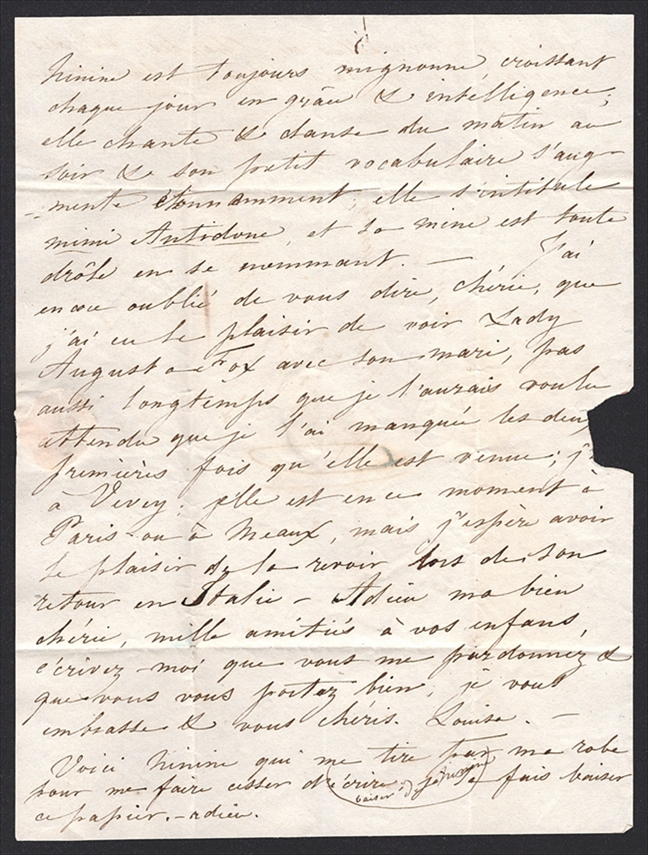 Ninine est toujours mignonne, croissant
chaque jour en grâce & intelligence;
elle chante & danse du matin au
soir & son petit vocabulaire s'aug-
-mente étonnamment; elle s'intitule
mimi Antidone, et sa mine est toute
drôle en se nommant. — J'ai
encore oublié de vous dire, chérie, que
j'ai eu le plaisir de voir Lady
Augusta Fox avec son mari, pas
aussi longtemps que je l'aurais voulu
attendu que je l'ai manquée les deux
premières fois qu'elle est venue;
à Vevey; elle est en ce moment à
Paris ou à Meaux, mais j'espère avoir
le plaisir de la revoir lors de son
retour en Italie — Adieu ma bien
chérie, mille amitiés à vos enfans,
écrivez-moi que vous me pardonnez &
que vous vous portez bien. je vous
embrasse & vous chéris. Louise. —
Voici Ninine qui me tire par ma robe
pour me faire cesser d'écrire, je fais baiser
baiser de
ce papier. — adieu.